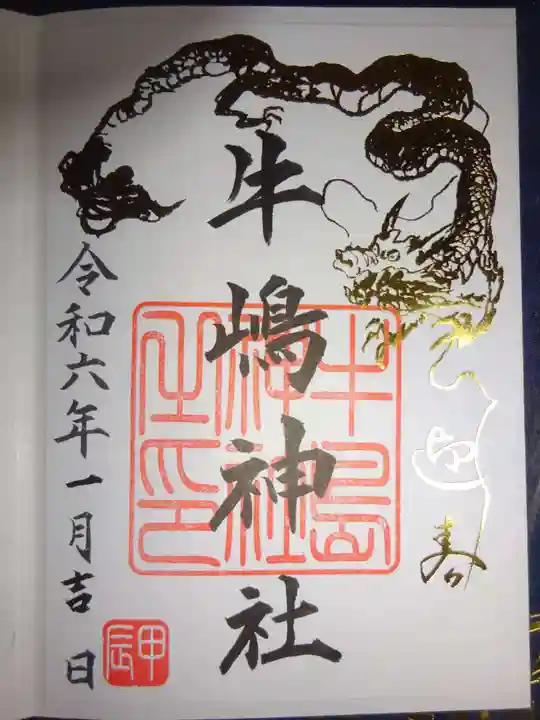 牛嶋神社
牛嶋神社之印
迎
寿
令和六年一月吉日
甲辰